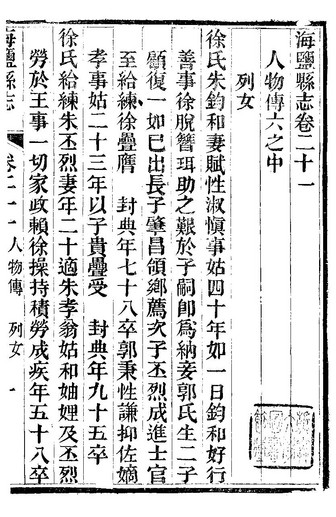 海鹽縣志卷二十一
人物傳六之中
列女
徐氏朱鈞和妻賦性淑愼事姑四十年如一日鈞和好行
善事徐脫簪珥助之艱於子嗣卽爲納妾郭氏生二子
顧復一如已出長子肇昌領鄉薦次子丕烈成進士官
至給練徐疊膺　封典年七十八卒郭秉性謙抑佐嫡
孝事姑二十三年以子貴疊受　封典年九十五卒
徐氏給練朱丕烈妻年二十適朱孝翁姑和妯娌及丕烈
勞於王事一切家政賴徐操持積勞成疾年五十八卒
海鹽縣志
卷二十一　人物傳　列女　一